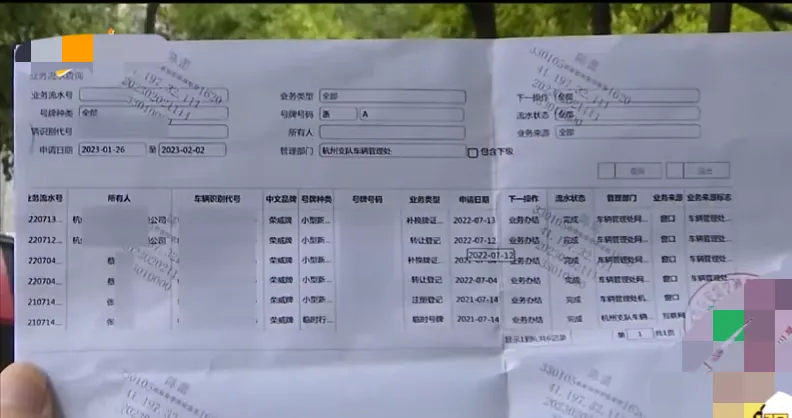 业务流水查询
业务流水号 业务类型 全部 下一操作 全部
号牌种类 全部 号牌号码 浙 A 流水状态 全部
车辆识别代号 所有人 业务来源 全部
申请日期 2023-01-26 至 2023-02-02 管理部门 杭州支队车辆管理处 包含下级
查询 退出
业务流水号 所有人 车辆识别代号 中文品牌 号牌种类 号牌号码 业务类型 申请日期 下一操作 流水状态 管理部门 业务来源 业务来源标志
220713... 杭 公司 荣威牌 小型新... 补换牌证... 2022-07-13 业务办结 完成 车辆管理处网... 窗口 车辆管理处...
220712... 公司 荣威牌 小型新... 转让登记 2022-07-12 业务办结 完成 车辆管理处网... 窗口 车辆管理处...
2022-07-12
220704... 蔡 荣威牌 小型新... 补换牌证... 业务办结 完成 车辆管理处网... 窗口 车辆管理处...
220704... 荣威牌 小型新... 转让登记 2022-07-04 业务办结 完成 车辆管理处网... 窗口 车辆管理处...
210714... 张 荣威牌 小型新... 注册登记 2021-07-14 业务办结 完成 车辆管理处机... 窗口
210714... 张 荣威牌 临时行... 临时号牌 2021-07-14 业务办结 完成 杭州支队车辆... 互联网
显示1到6,共6记录 第 1 共1页